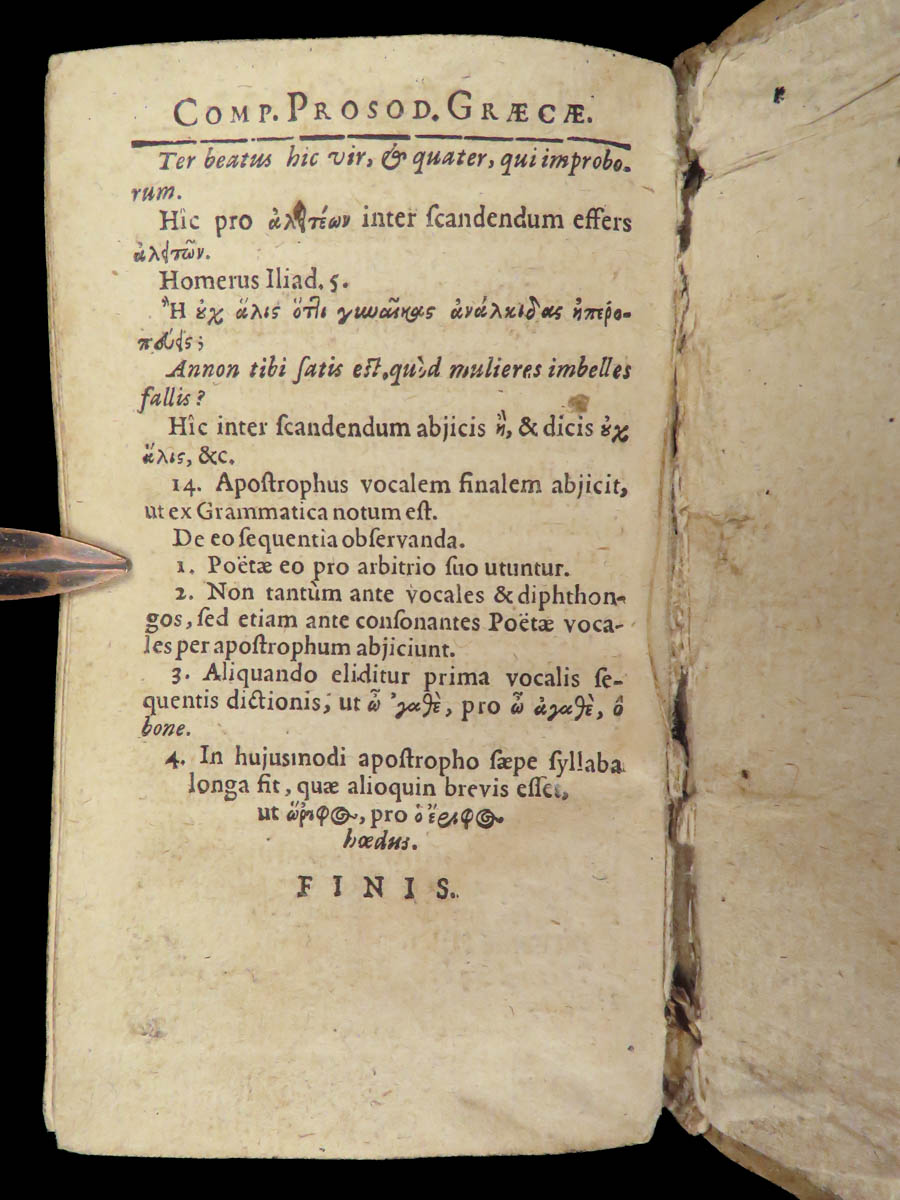 COMP. PROSOD. GRÆCÆ.
Ter beatus hic vir, & quater, qui improbo-
rum.
Hîc pro ἀλιτέων inter ſcandendum effers
ἀλιτῶν.
Homerus Iliad. 5.
Ἢ οὐχ ἅλις ὅτι γυναῖκας ἀνάλκιδας ἠπερο-
πεύεις;
Annon tibi ſatis eſt, quòd mulieres imbelles
fallis?
Hîc inter ſcandendum abjicis ἢ, & dicis οὐχ
ἅλις, &c.
14. Apoſtrophus vocalem finalem abjicit,
ut ex Grammatica notum eſt.
De eo ſequentia obſervanda.
1. Poëtæ eo pro arbitrio ſuo utuntur.
2. Non tantùm ante vocales & diphthon-
gos, ſed etiam ante conſonantes Poëtæ voca-
les per apoſtrophum abjiciunt.
3. Aliquando eliditur prima vocalis ſe-
quentis dictionis, ut ὦ 'γαθὲ, pro ὦ ἀγαθὲ, ô
bone.
4. In hujusmodi apoſtropho ſæpe ſyllaba
longa fit, quæ alioquin brevis eſſet,
ut ὥριφος, pro ὁ ἔριφος
hœdus.
FINIS.